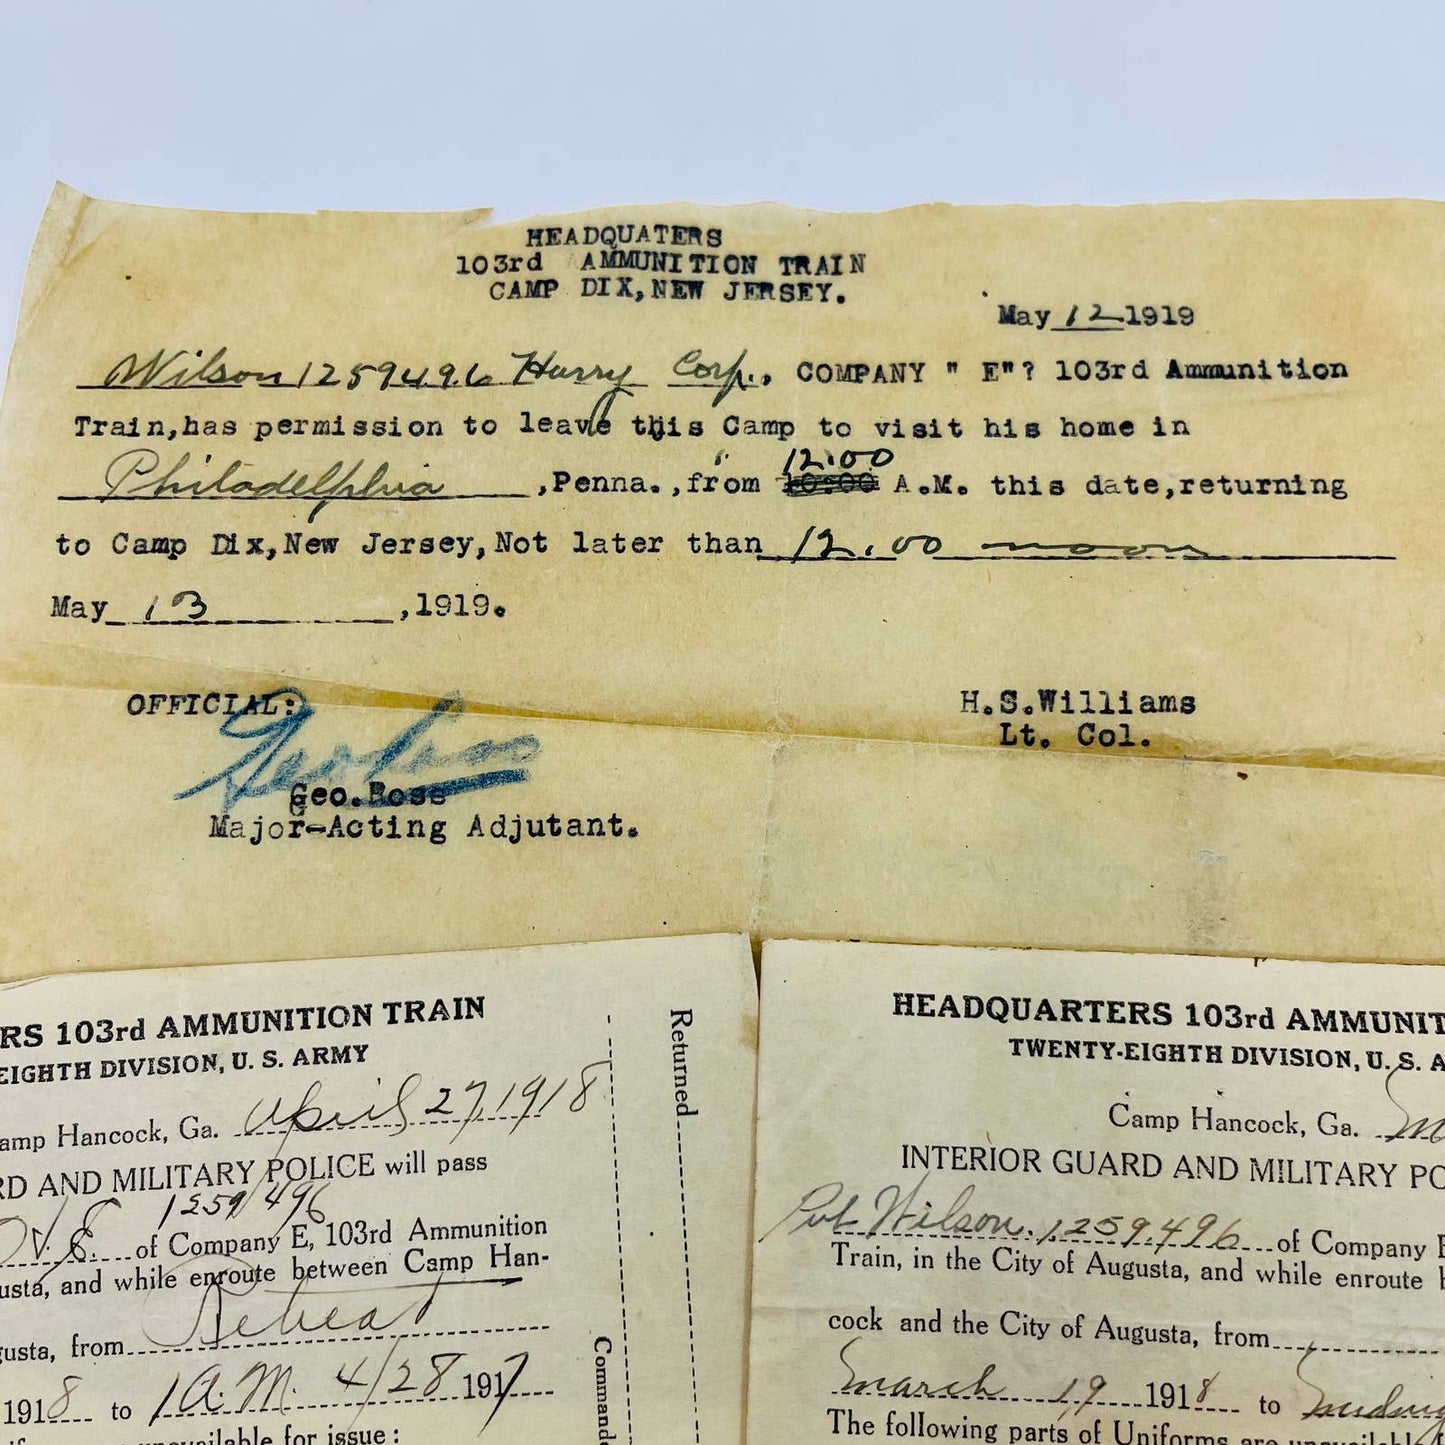 HEADQUATERS
103rd AMMUNITION TRAIN
CAMP DIX, NEW JERSEY.
May 12 1919
Wilson 1259496 Harry Corp., COMPANY " E"? 103rd Ammunition
Train, has permission to leave this Camp to visit his home in
Philadelphia, Penna., from 12.00 A.M. this date, returning
to Camp Dix, New Jersey, Not later than 12.00 noon
May 13, 1919.
OFFICIAL:
H.S.Williams
Lt. Col.
Geo Ross
Geo. Ross
Major-Acting Adjutant.
RS 103rd AMMUNITION TRAIN
EIGHTH DIVISION, U. S. ARMY
amp Hancock, Ga. April 27, 1918
RD AND MILITARY POLICE will pass
1259496
of Company E, 103rd Ammunition
usta, and while enroute between Camp Han-
gusta, from Retreat
1918 to 1 A.M. 4/28 1917
unavailable for issue:
Returned
Commande
HEADQUARTERS 103rd AMMUNIT
TWENTY-EIGHTH DIVISION, U. S. A
Camp Hancock, Ga. M
INTERIOR GUARD AND MILITARY PO
Pvt. Wilson. 1259496 of Company E
Train, in the City of Augusta, and while enroute b
cock and the City of Augusta, from
March 19, 1918 to Midnig
The following parts of Uniforms are unavailable f